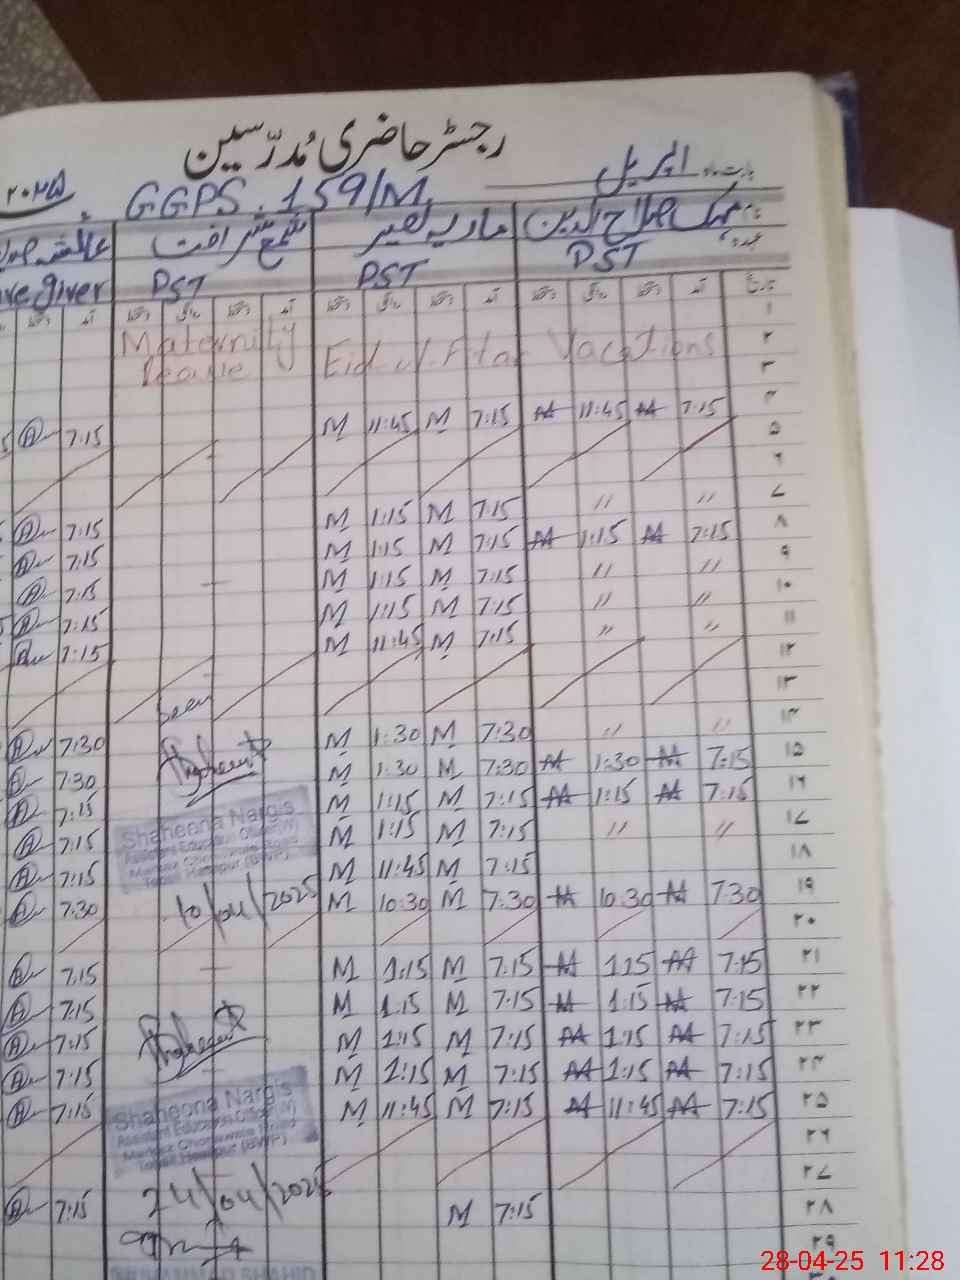 رجسٹر حاضری مُدرّسین
بابت ماہ اپریل ۲۰۲۵
GGPS. 159/M
نام مہک صلاح الدین ماریہ نصیر شمع شرافت عائشہ
عہدہ PST PST PST ive giver
تاریخ آمد دستخط روانگی دستخط آمد دستخط روانگی دستخط آمد دستخط روانگی دستخط آمد دستخط
۱
Maternity Eid ul Fitar Vacations ۲
leave ۳
7:15 M 11:45 M 7:15 AA 11:45 AA 7:15 ۴
۵
۶
7:15 M 1:15 M 7:15 " " ۷
7:15 M 1:15 M 7:15 AA 1:15 AA 7:15 ۸
7:15 M 1:15 M 7:15 " " ۹
7:15 M 1:15 M 7:15 " " ۱۰
7:15 M 11:45 M 7:15 " " ۱۱
۱۲
Seen ۱۳
7:30 M 1:30 M 7:30 " " ۱۴
7:30 M 1:30 M 7:30 AA 1:30 AA 7:15 ۱۵
7:15 M 1:15 M 7:15 AA 1:15 AA 7:15 ۱۶
7:15 M 1:15 M 7:15 " " ۱۷
7:15 M 11:45 M 7:15 ۱۸
7:30 M 10:30 M 7:30 AA 10:30 AA 7:30 ۱۹
۲۰
Shaheena Nargis
Assistant Education Officer (W)
Tehsil Hasilpur (BWP)
10/04/2025
7:15 M 1:15 M 7:15 AA 1:15 AA 7:15 ۲۱
7:15 M 1:15 M 7:15 AA 1:15 AA 7:15 ۲۲
7:15 M 1:15 M 7:15 AA 1:15 AA 7:15 ۲۳
7:15 M 1:15 M 7:15 AA 1:15 AA 7:15 ۲۴
7:15 M 11:45 M 7:15 AA 11:45 AA 7:15 ۲۵
۲۶
۲۷
Shaheena Nargis
Assistant Education Officer (W)
Tehsil Hasilpur (BWP)
24/04/2025
7:15 M 7:15 ۲۸
۲۹
MUHAMMAD SHAHID
28-04-25 11:28